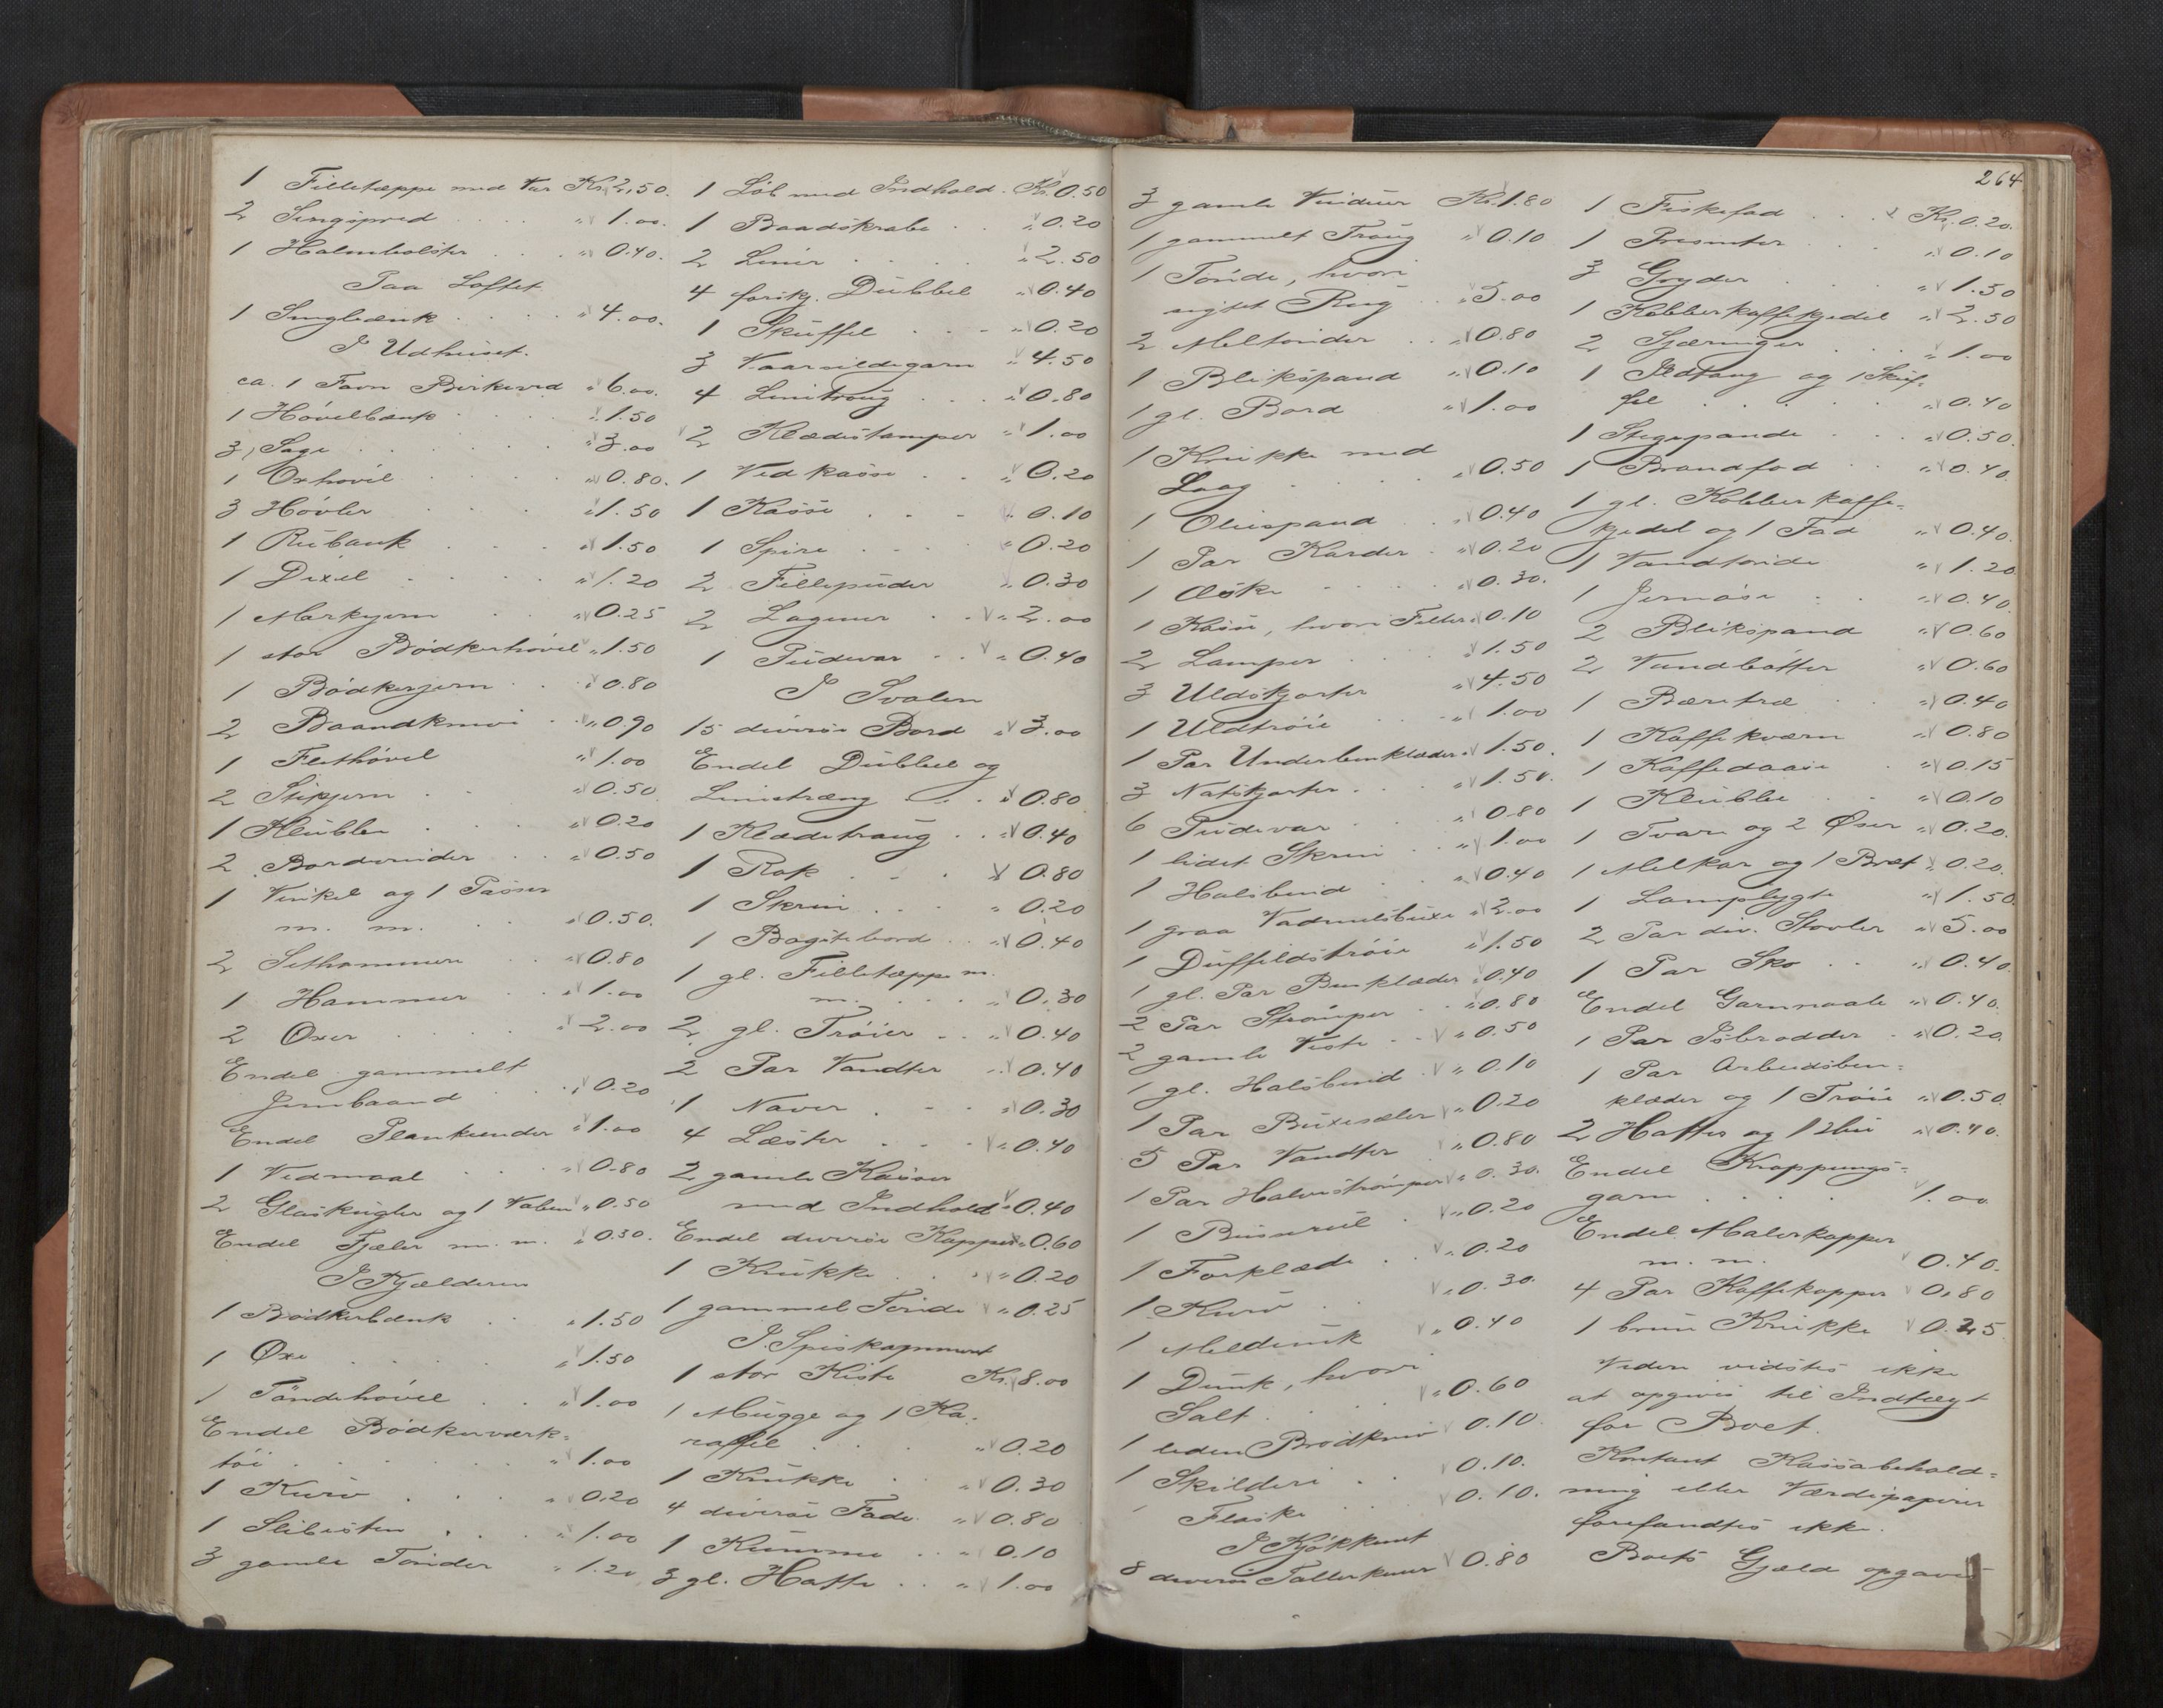 1 Filletæppe med Var Kr. 2.50.
2 Sengspred . . . . " 1.00.
1 Halmbolster . . . " 0.40.
Paa Loftet
1 Sengbænk . . . . " 4.00.
I Udhuset.
ca. 1 Favn Birkeved " 6.00.
1 Høvelbænk . . . . " 1.50
3 Sage . . . . . " 3.00
1 Oxhøvel . . . . " 0.80.
3 Høvler . . . . " 1.50
1 Rubank . . . . " 1.50
1 Dixel . . . . " 1.20
1 Merkejern . . . " 0.25
1 stor Bødkerhøvel " 1.50
1 Bødkerjern . . " 0.80
2 Baandknive . . " 0.90
1 Flethøvel " 1.00
2 Stikjern . . " 0.50
1 Klubbe . . . " 0.20
2 Bordvrider . . " 0.50
1 Vinkel og 1 Passer
m. m. . . . " 0.50.
2 Sethammere . . " 0.80
1 Hammer . . " 1.00
2 Øxer . . . " 2.00
Endel gammelt
Jernbaand . . " 0.20
Endel Plankeender " 1.00
1 Vedmaal . . . " 0.80
2 Glaskugler og 1 " 0.50
Endel Fjæler m. m. " 0.30.
I Kjælderen
1 Bødkerbænk . . " 1.50
1 Øxe . . . . . " 1.50
1 Tøndehøvel . . " 1.00
Endel Bødkerværk=
tøi . . . . . . " 1.00
1 Kurv . . . . " 0.20
1 Slibesten . . . " 1.00
3 gamle Tønder " 1.20
1 Løb med Indhold. Kr. 0.50
1 Baadskrabe . . " 0.20
2 Liner . . . . " 2.50
4 forskj. Dubbel " 0.40
1 Skuffel . . . " 0.20
3 Vaarsildegarn " 4.50
4 Linetroug . . . " 0.80
2 Klædestamper " 1.00
1 Vedkasse . . " 0.20
1 Kasse . . . " 0.10
1 Spire . . . . " 0.20
2 Fillepuder " 0.30
2 Lagener . . " 2.00
1 Pudevar . . " 0.40
I Svalen
15 diverse Bord " 3.00
Endel Dubbel og
Linestræng . . . " 0.80
1 Klædetraug . . " 0.40
1 Rok . . . " 0.80
1 Skrin . . . " 0.20
1 Bagstebord . . " 0.40
1 gl. Filletæppe m.
m. . . . . " 0.30
2 gl. Trøier . . " 0.40
2 Par Vandter . . " 0.40
1 Naver . . . " 0.30
4 Læster . . . " 0.40
2 gamle Kasser
med Indhold " 0.40
Endel diverse Kopper " 0.60
1 Krukke . . . " 0.20
1 gammel Tønde " 0.25
I Spiskammeret
1 stor Kiste Kr. 8.00
1 Mugge og 1 Ka=
raffel . . . . " 0.20
1 Krukke . . . " 0.30
4 diverse Fade. " 0.80
1 Kumme . . . " 0.10
3 gl. Hatte . . " 1.00
3 gamle Vinduer Kr. 1.80
1 gammelt Troug " 0.10
1 Tønde, hvori
sigtet Rug . . " 5.00
2 Meltønder . . " 0.80
1 Blikspand " 0.10
1 gl. Bord " 1.00
1 Krukke med
Laag . . . . " 0.50
1 Oliespand . . " 0.40
1 Par Karder . " 0.20
1 Æske . . . . " 0.30.
1 Kasse, hvori Filler " 0.10
2 Lamper . . . " 1.50
3 Uldskjorter " 4.50
1 Uldtrøie . . " 1.00
1 Par Underbenklæder " 1.50.
3 Natskjorter . . . " 1.50.
6 Pudevar . . . " 0.80
1 lidet Skrin . . " 1.00
1 Halsbind . . " 0.40
1 graa Vadmelsbuxe " 2.00
1 Duffeldstrøie " 1.50
1 gl. Par Benklæder " 0.40
2 Par Strømper . . " 0.80
2 gamle Veste . . " 0.50
1 gl. Halsbind . " 0.10
1 Par Buxeseler " 0.20
5 Par Vandter " 0.80
1 Par Halvestrømper " 0.30.
1 Busserul . . " 0.20
1 Forklæde . . " 0.20
1 Kurv . . " 0.30
1 Meldunk " 0.40
1 Dunk, hvori
Salt. . . . " 0.60
1 liden Brødkniv 0.10.
1 Skilderi . . 0.10.
1 Flaske . . 0.10.
I Kjøkkenet
8 diverse Tallerkener 0.80
264
1 Fiskefad . . . Kr. 0.20.
1 Presenter . . . " 0.10
3 Gryder . . . . " 1.50
1 Kobberkaffekjedel " 2.50
2 Gjæringer . . . " 1.00
1 Ildtang og 1 Skuf=
fel . . . . . " 0.40
1 Stegepande . . " 0.50.
1 Brandfad . . " 0.40
1 gl. Kobberkaffe=
kjedel og 1 Fad " 0.40.
1 Vandtønde " 1.20
1 Jernøse . . " 0.40.
2 Blikspand " 0.60
2 Vandbøtter " 0.60
1 Bæretræ . " 0.40
1 Kaffekværn " 0.80
1 Kaffedaase . " 0.15
1 Klubbe . . . " 0.10
1 Tvare og 2 Øser " 0.20.
1 Melkar og 1 Bret " 0.20.
1 Lamplygte " 1.50.
2 Par div. Støvler " 5.00
1 Par Sko . . " 0.40.
Endel Garnnaale " 0.40.
1 Par Isbrodder . " 0.20.
1 Par Arbeidsben=
klæder og 1 Trøie " 0.50.
2 Hatter og 1 Hue " 0.40.
Endel Kroppungs=
garn . . . . 1.00
Endel Malerkopper
m. m. 0.40.
4 Par Kaffekopper 0.80
1 brun Krukke 0.25
Videre vidstes ikke
at opgives til Indtægt
for Boet.
Kontant Kassabehold=
ning eller Værdipapirer
forefandtes ikke.
Boets Gjæld opgaves